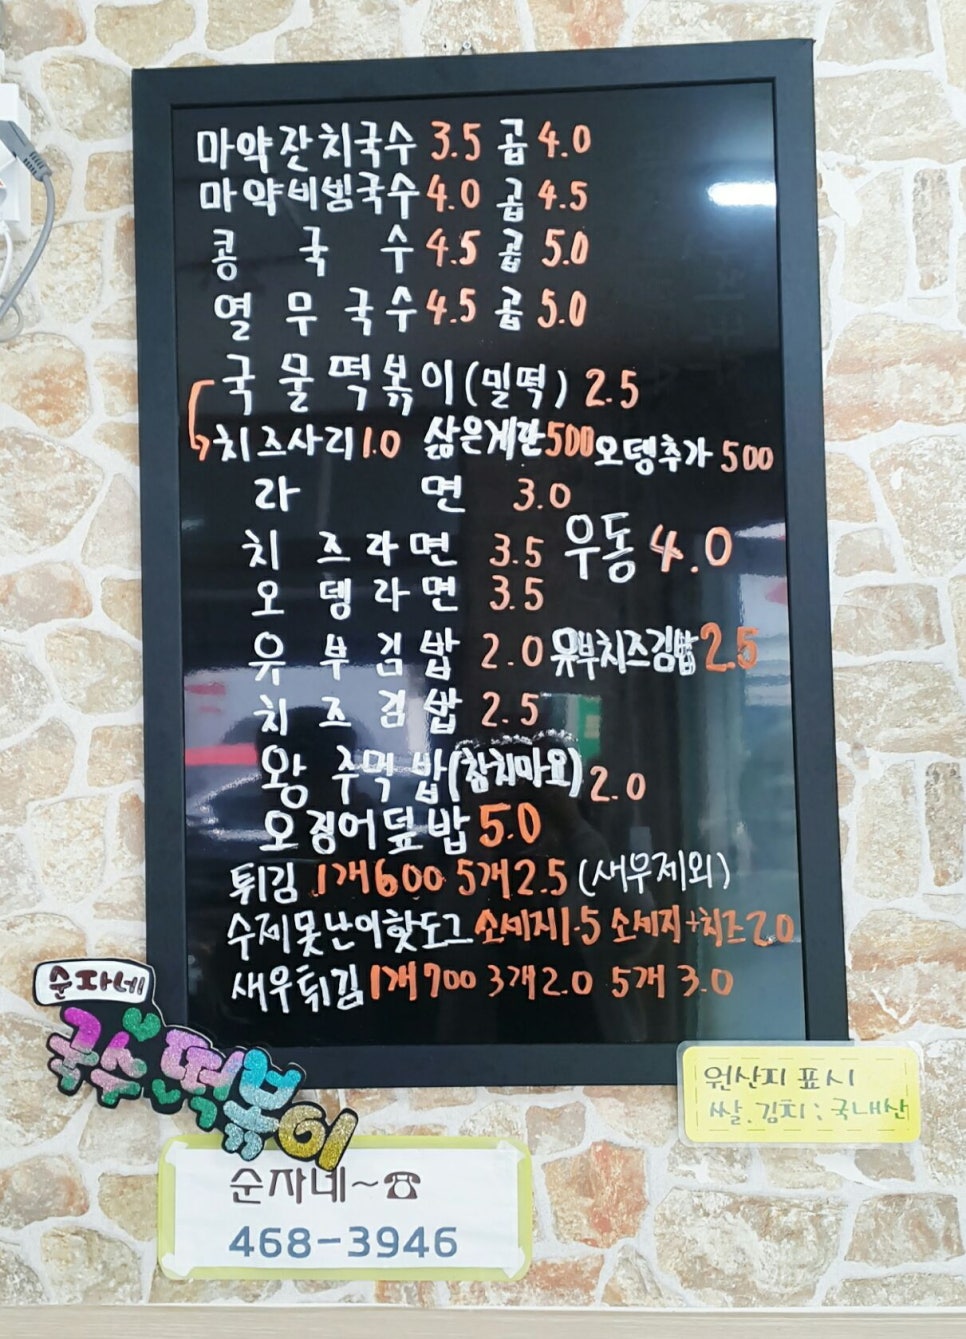 마약잔치국수 3.5 곱 4.0
마약비빔국수 4.0 곱 4.5
콩국수 4.5 곱 5.0
열무국수 4.5 곱 5.0
국물떡볶이(밀떡) 2.5
치즈사리 1.0 삶은계란 500 오뎅추가 500
라면 3.0
치즈라면 3.5 우동 4.0
오뎅라면 3.5
유부김밥 2.0 유부치즈김밥 2.5
치즈김밥 2.5
왕주먹밥(참치마요) 2.0
오징어덮밥 5.0
튀김 1개 600 5개 2.5 (새우제외)
수제못난이핫도그 소세지 1.5 소세지+치즈 2.0
새우튀김 1개 700 3개 2.0 5개 3.0
순자네
국수 떡볶이
원산지 표시
쌀.김치:국내산
순자네~☎
468-3946